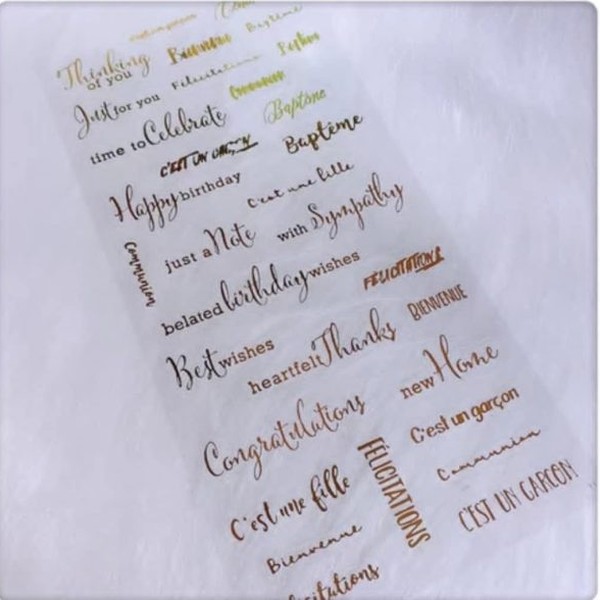 Thinking of you
Bienvenue
Baptême
Just for you
Félicitations
Communion
Baptême
time to Celebrate
C'EST UN GARÇON
Baptême
Happy birthday
C'est une fille
Communion
just a Note
with Sympathy
belated birthday wishes
FÉLICITATIONS
BIENVENUE
Best wishes
heartfelt Thanks
new Home
Congratulations
C'est un garçon
C'est une fille
FÉLICITATIONS
Communion
C'EST UN GARÇON
Bienvenue